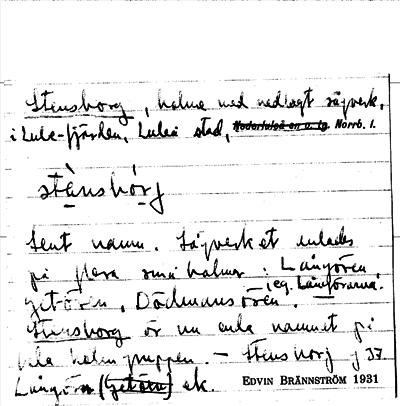 Stensborg, holme med nedlagt sågverk,
i Lule-fjärden, Luleå stad, Nederluleå sn o. tg. Norrb. l.
stènsbórj
Sent namn. Sågverket anlades
på flera små holmar: Långören,
eg. Långörarna.
Getören, Dödmansören.
Stensborg är nu enda namnet på
hela holmgruppen. – Stensborj j 37
Långörn (Getörn) ek.
EDVIN BRÄNNSTRÖM 1931